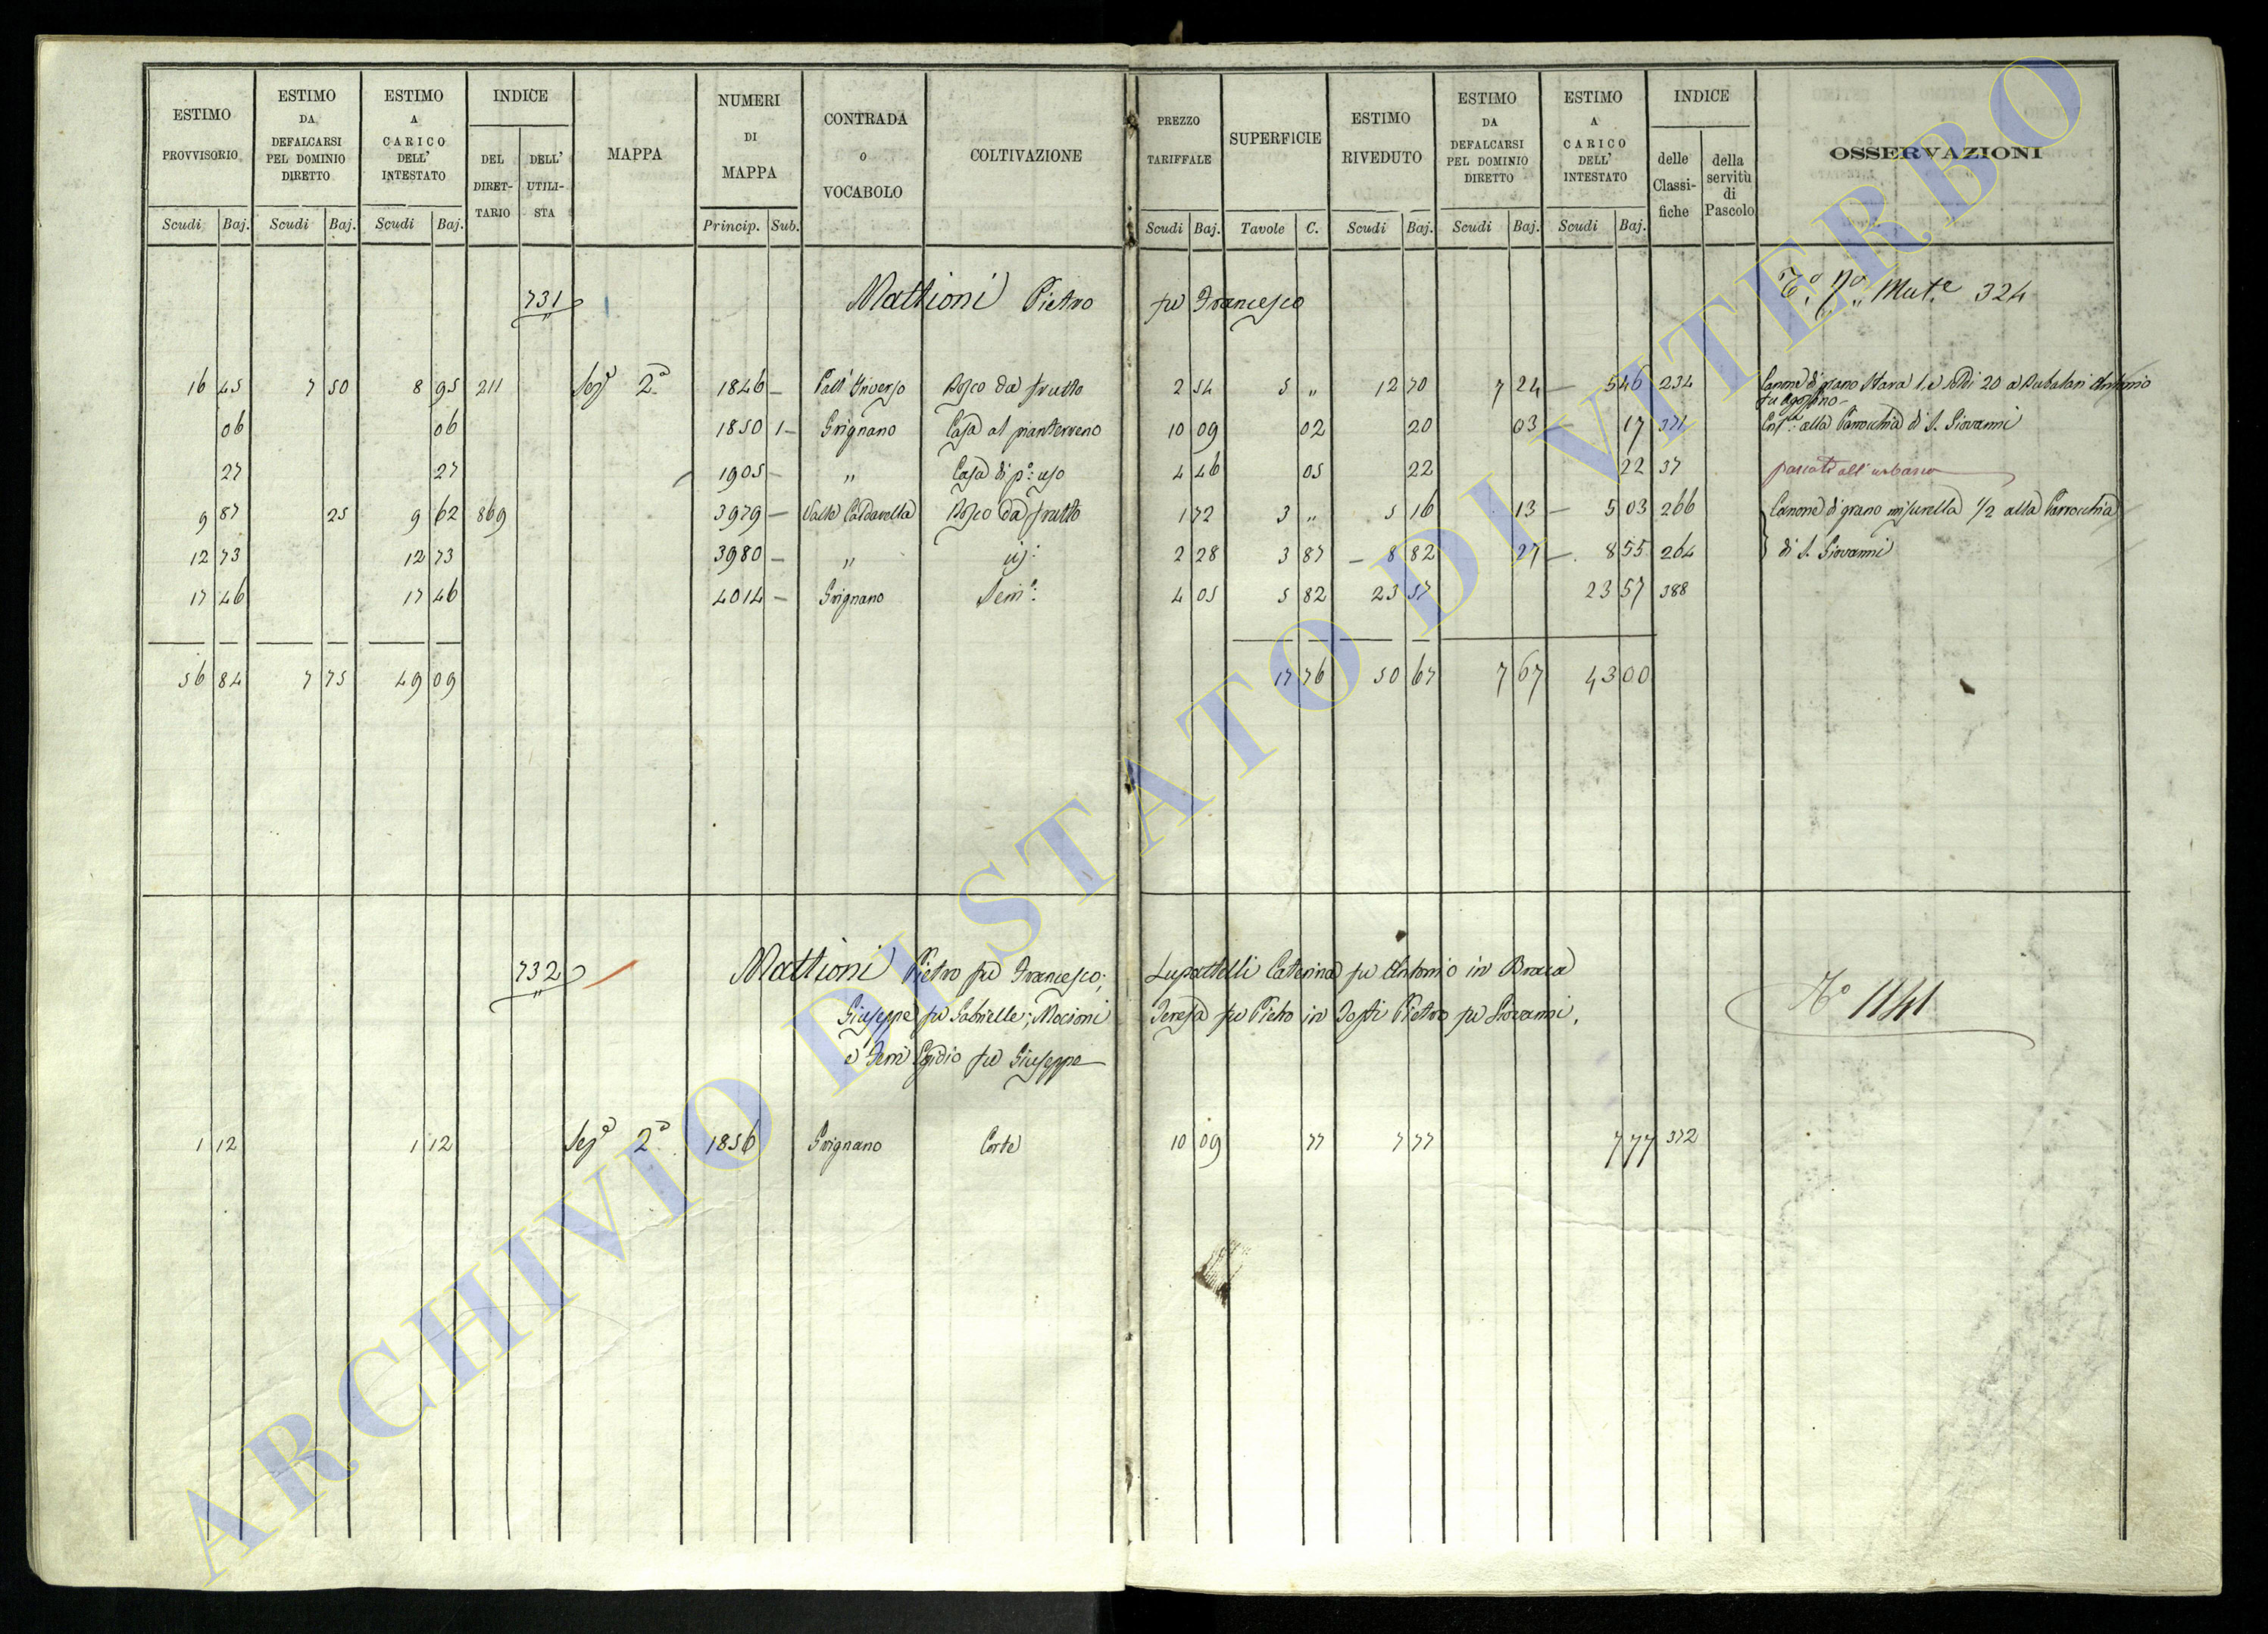 ESTIMO PROVVISORIO Scudi Baj.
ESTIMO DA DEFALCARSI PEL DOMINIO DIRETTO Scudi Baj.
ESTIMO A CARICO DELL' INTESTATO Scudi Baj.
INDICE DEL DIRET- TARIO DELL' UTILI- STA
MAPPA
NUMERI DI MAPPA Princip. Sub.
CONTRADA o VOCABOLO
COLTIVAZIONE
PREZZO TARIFFALE Scudi Baj.
SUPERFICIE Tavole C.
ESTIMO RIVEDUTO Scudi Baj.
ESTIMO DA DEFALCARSI PEL DOMINIO DIRETTO Scudi Baj.
ESTIMO A CARICO DELL' INTESTATO Scudi Baj.
INDICE delle Classi- fiche della servitù di Pascolo
OSSERVAZIONI
731 Mattioni Pietro fu Francesco Mut.e 324
16 45 7 50 8 95 211 Sez.e 2a 1846 Bosco da frutto 2 54 5 " 12 70 7 24 5 46 234 Canone di grano Stara 1, e soldi 20 a Antonio
fu Agostino
06 06 1850 1 Grignano Casa al pianterreno 10 09 02 20 03 17 371 alla Parrocchia di S. Giovanni
27 27 1905 " Casa di p.o uso 4 46 05 22 22 37 passato all'urbano
9 87 25 9 62 869 3979 Valle Caldarella Bosco da frutto 1 72 3 " 5 16 13 5 03 266 Canone di grano misurella 1/2 alla Parrocchia
12 73 12 73 3980 " 2 28 3 87 8 82 27 8 55 264 di S. Giovanni
17 46 17 46 4014 Grignano Sem.o 4 05 5 82 23 57 23 57 388
56 84 7 75 49 09 17 76 50 67 7 67 43 00
732 Mattioni Pietro fu Francesco; Lupattelli Caterina fu Antonio in Braca
Giuseppe fu Gabrielle; Mocioni Teresa fu Pietro in Pietro fu Giovanni, No 1141
e Egidio fu Giuseppe
1 12 1 12 Sez.e 2a 1856 Grignano Corte 10 09 77 7 77 7 77 372
ARCHIVIO DI STATO DI VITERBO